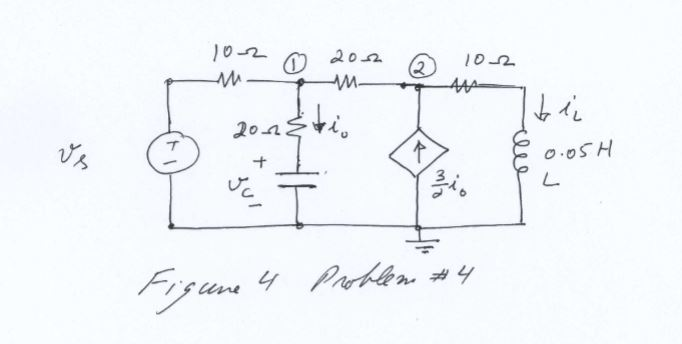 10Ω ① 20Ω ② 10Ω
20Ω ↓ i₀ ↓ i_L
v_s + − + v_c − ↑ 3/2 i₀ 0.05H
L
Figure 4 Problem #4